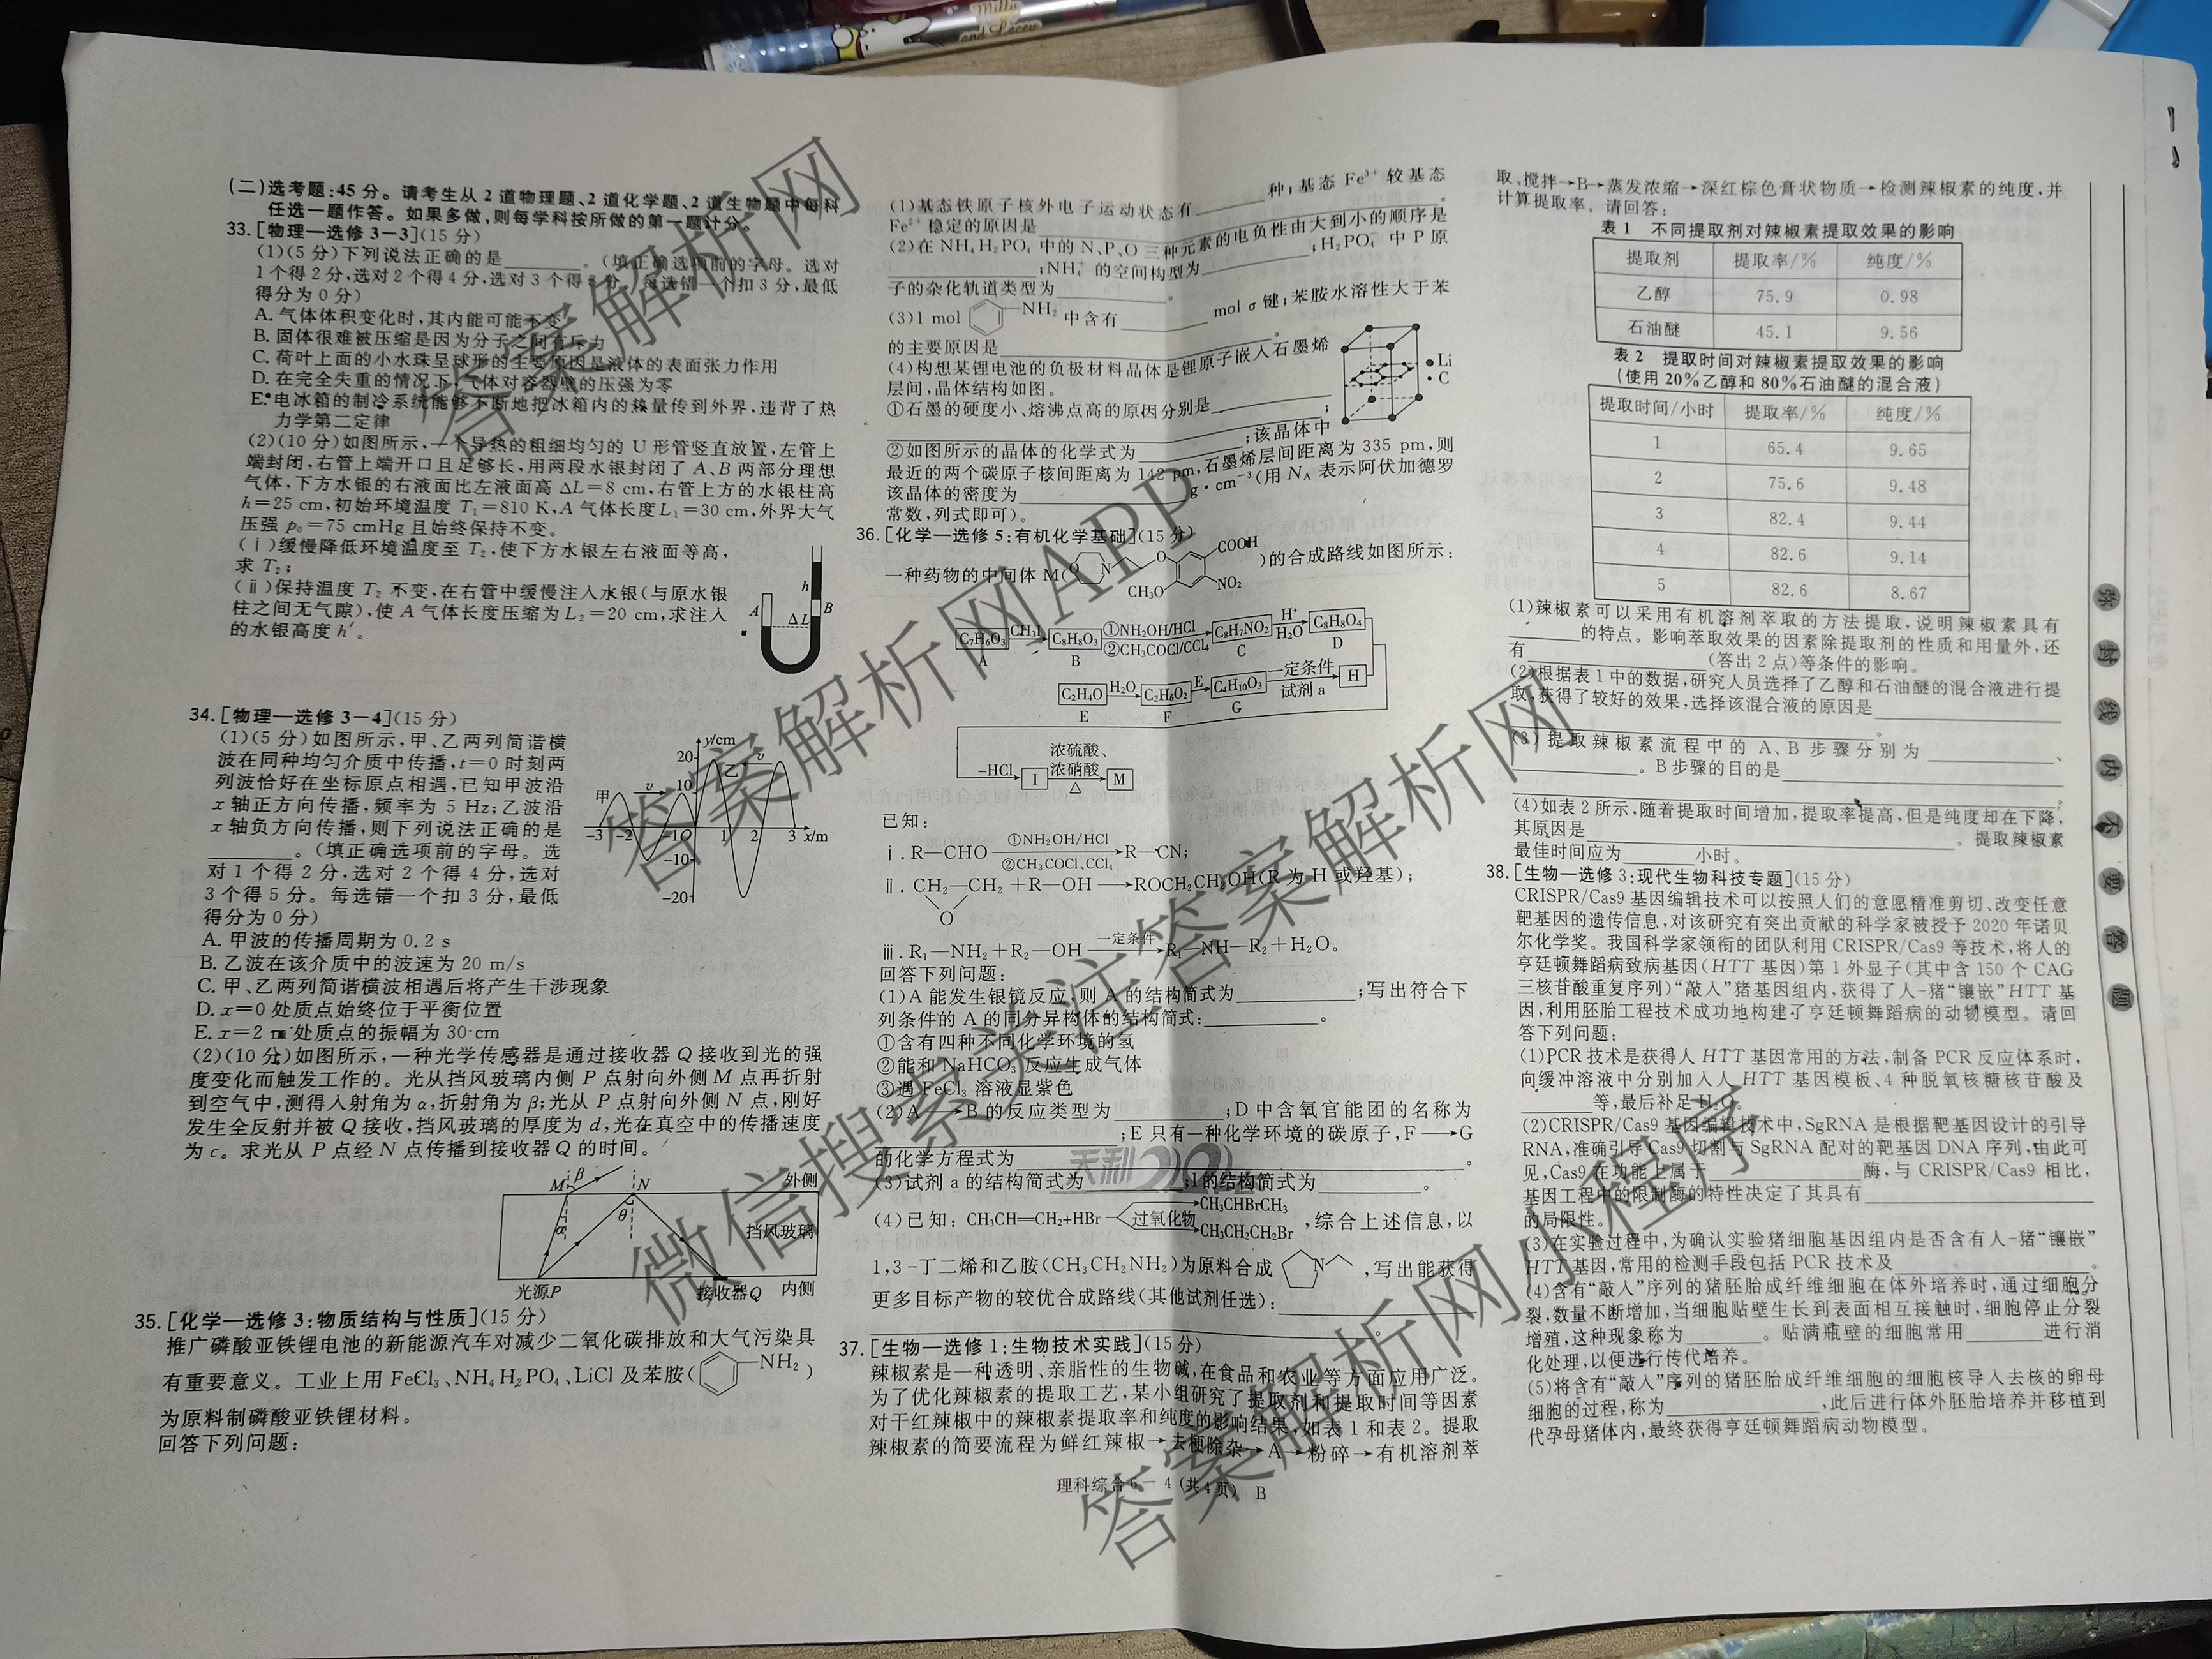 Milly
and Lacey
(二)选考题:45分。请考生从2道物理题、2道化学题、2道生物题中每科
任选一题作答。如果多做,则每学科按所做的第一题计分。
33.[物理—选修3-3](15分)
(1)(5分)下列说法正确的是________。(填正确选项前的字母。选对
1个得2分,选对2个得4分,选对3个得5分。每选错一个扣3分,最低
得分为0分)
A.气体体积变化时,其内能可能不变
B.固体很难被压缩是因为分子之间有斥力
C.荷叶上面的小水珠呈球形的主要原因是液体的表面张力作用
D.在完全失重的情况下,气体对容器壁的压强为零
E.电冰箱的制冷系统能够不断地把冰箱内的热量传到外界,违背了热
力学第二定律
(2)(10分)如图所示,一个导热的粗细均匀的U形管竖直放置,左管上
端封闭,右管上端开口且足够长,用两段水银封闭了A、B两部分理想
气体,下方水银的右液面比左液面高ΔL=8 cm,右管上方的水银柱高
h=25 cm,初始环境温度T₁=810 K,A气体长度L₁=30 cm,外界大气
压强p₀=75 cmHg且始终保持不变。
(ⅰ)缓慢降低环境温度至T₂,使下方水银左右液面等高,
求T₂;
(ⅱ)保持温度T₂不变,在右管中缓慢注入水银(与原水银
柱之间无气隙),使A气体长度压缩为L₂=20 cm,求注入
的水银高度h′。
h
A
ΔL
B
34.[物理—选修3-4](15分)
(1)(5分)如图所示,甲、乙两列简谐横
波在同种均匀介质中传播,t=0时刻两
列波恰好在坐标原点相遇,已知甲波沿
x轴正方向传播,频率为5 Hz;乙波沿
x轴负方向传播,则下列说法正确的是
________。(填正确选项前的字母。选
对1个得2分,选对2个得4分,选对
3个得5分。每选错一个扣3分,最低
得分为0分)
y/cm
20
10
甲
v
乙
v
-3 -2 -1 O 1 2 3 x/m
-10
-20
A.甲波的传播周期为0.2 s
B.乙波在该介质中的波速为20 m/s
C.甲、乙两列简谐横波相遇后将产生干涉现象
D.x=0处质点始终位于平衡位置
E.x=2 m处质点的振幅为30 cm
(2)(10分)如图所示,一种光学传感器是通过接收器Q接收到光的强
度变化而触发工作的。光从挡风玻璃内侧P点射向外侧M点再折射
到空气中,测得入射角为α,折射角为β;光从P点射向外侧N点,刚好
发生全反射并被Q接收,挡风玻璃的厚度为d,光在真空中的传播速度
为c。求光从P点经N点传播到接收器Q的时间。
M β N 外侧
α θ 挡风玻璃
光源P 接收器Q 内侧
35.[化学—选修3:物质结构与性质](15分)
推广磷酸亚铁锂电池的新能源汽车对减少二氧化碳排放和大气污染具
有重要意义。工业上用FeCl₃、NH₄H₂PO₄、LiCl及苯胺(—NH₂)
为原料制磷酸亚铁锂材料。
回答下列问题:
(1)基态铁原子核外电子运动状态有________种;基态Fe³⁺较基态
Fe²⁺稳定的原因是________。
(2)在NH₄H₂PO₄中的N、P、O三种元素的电负性由大到小的顺序是
________;NH₄⁺的空间构型为________;H₂PO₄⁻中P原
子的杂化轨道类型为________。
(3)1 mol —NH₂中含有________mol σ键;苯胺水溶性大于苯
的主要原因是________。
(4)构想某锂电池的负极材料晶体是锂原子嵌入石墨烯
层间,晶体结构如图。
Li
C
①石墨的硬度小、熔沸点高的原因分别是________
________;
②如图所示的晶体的化学式为________;该晶体中
最近的两个碳原子核间距离为142 pm,石墨烯层间距离为335 pm,则
该晶体的密度为________g·cm⁻³(用N_A表示阿伏加德罗
常数,列式即可)。
36.[化学—选修5:有机化学基础](15分)
一种药物的中间体M(O N O COOH CH₃O NO₂)的合成路线如图所示:
C₇H₆O₃ CH₃I C₈H₈O₃ ①NH₂OH/HCl ②CH₃COCl/CCl₄ C₈H₇NO₂ H⁺ H₂O C₈H₈O₄
A B C D
C₂H₄O H₂O C₂H₆O₂ E C₄H₁₀O₃ 一定条件 试剂a H
E F G
-HCl I 浓硫酸、浓硝酸 △ M
已知:
ⅰ.R—CHO ①NH₂OH/HCl ②CH₃COCl、CCl₄ →R—CN;
ⅱ.CH₂—CH₂+R—OH→ROCH₂CH₂OH(R为H或羟基);
O
ⅲ.R₁—NH₂+R₂—OH 一定条件→R₁—NH—R₂+H₂O。
回答下列问题:
(1)A能发生银镜反应,则A的结构简式为________;写出符合下
列条件的A的同分异构体的结构简式:________。
①含有四种不同化学环境的氢
②能和NaHCO₃反应生成气体
③遇FeCl₃溶液显紫色
(2)A→B的反应类型为________;D中含氧官能团的名称为
________;E只有一种化学环境的碳原子,F→G
的化学方程式为________。
(3)试剂a的结构简式为________;I的结构简式为________。
(4)已知:CH₃CH═CH₂+HBr 过氧化物 CH₃CHBrCH₃ CH₃CH₂CH₂Br,综合上述信息,以
1,3-丁二烯和乙胺(CH₃CH₂NH₂)为原料合成 N ,写出能获得
更多目标产物的较优合成路线(其他试剂任选):________
________。
37.[生物—选修1:生物技术实践](15分)
辣椒素是一种透明、亲脂性的生物碱,在食品和农业等方面应用广泛。
为了优化辣椒素的提取工艺,某小组研究了提取剂和提取时间等因素
对干红辣椒中的辣椒素提取率和纯度的影响结果,如表1和表2。提取
辣椒素的简要流程为鲜红辣椒→去梗除杂→A→粉碎→有机溶剂萃
理科综合6-4(共4页) B
取、搅拌→B→蒸发浓缩→深红棕色膏状物质→检测辣椒素的纯度,并
计算提取率。请回答:
表1 不同提取剂对辣椒素提取效果的影响
提取剂 提取率/% 纯度/%
乙醇 75.9 0.98
石油醚 45.1 9.56
表2 提取时间对辣椒素提取效果的影响
(使用20%乙醇和80%石油醚的混合液)
提取时间/小时 提取率/% 纯度/%
1 65.4 9.65
2 75.6 9.48
3 82.4 9.44
4 82.6 9.14
5 82.6 8.67
(1)辣椒素可以采用有机溶剂萃取的方法提取,说明辣椒素具有
________的特点。影响萃取效果的因素除提取剂的性质和用量外,还
有________(答出2点)等条件的影响。
(2)根据表1中的数据,研究人员选择了乙醇和石油醚的混合液进行提
取,获得了较好的效果,选择该混合液的原因是________
________。
(3)提取辣椒素流程中的A、B步骤分别为________、
________。B步骤的目的是________
________。
(4)如表2所示,随着提取时间增加,提取率提高,但是纯度却在下降,
其原因是________。提取辣椒素
最佳时间应为________小时。
38.[生物—选修3:现代生物科技专题](15分)
CRISPR/Cas9基因编辑技术可以按照人们的意愿精准剪切、改变任意
靶基因的遗传信息,对该研究有突出贡献的科学家被授予2020年诺贝
尔化学奖。我国科学家领衔的团队利用CRISPR/Cas9等技术,将人的
亨廷顿舞蹈病致病基因(HTT基因)第1外显子(其中含150个CAG
三核苷酸重复序列)“敲入”猪基因组内,获得了人-猪“镶嵌”HTT基
因,利用胚胎工程技术成功地构建了亨廷顿舞蹈病的动物模型。请回
答下列问题:
(1)PCR技术是获得人HTT基因常用的方法,制备PCR反应体系时,
向缓冲溶液中分别加入人HTT基因模板、4种脱氧核糖核苷酸及
________等,最后补足H₂O。
(2)CRISPR/Cas9基因编辑技术中,SgRNA是根据靶基因设计的引导
RNA,准确引导Cas9切割与SgRNA配对的靶基因DNA序列,由此可
见,Cas9在功能上属于________酶,与CRISPR/Cas9相比,
基因工程中的限制酶的特性决定了其具有________
的局限性。
(3)在实验过程中,为确认实验猪细胞基因组内是否含有人-猪“镶嵌”
HTT基因,常用的检测手段包括PCR技术及________。
(4)含有“敲入”序列的猪胚胎成纤维细胞在体外培养时,通过细胞分
裂,数量不断增加,当细胞贴壁生长到表面相互接触时,细胞停止分裂
增殖,这种现象称为________。贴满瓶壁的细胞常用________进行消
化处理,以便进行传代培养。
(5)将含有“敲入”序列的猪胚胎成纤维细胞的细胞核导入去核的卵母
细胞的过程,称为________,此后进行体外胚胎培养并移植到
代孕母猪体内,最终获得亨廷顿舞蹈病动物模型。
弥封线内不要答题
答案解析网
答案解析网APP
微信搜索关注答案解析网
答案解析网小程序